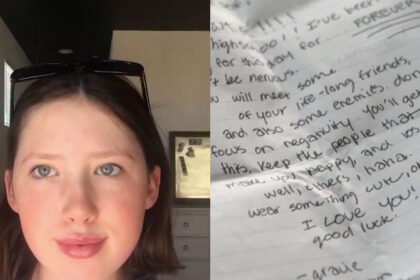 !!!! I've been
highschool! I've
for this day for .... FOREVER
t be nervous.
will meet some
of your life-long friends,
and also some enemies. don
focus on negativity. you'll get
this. keep the people that
make you happy, and
well, others, haha.
wear something cute,
I LOVE YOU!
good luck.
- gracie